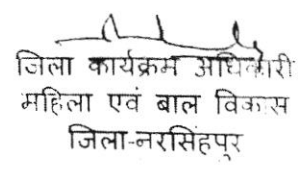 जिला कार्यक्रम अधिकारी
महिला एवं बाल विकास
जिला-नरसिंहपुर